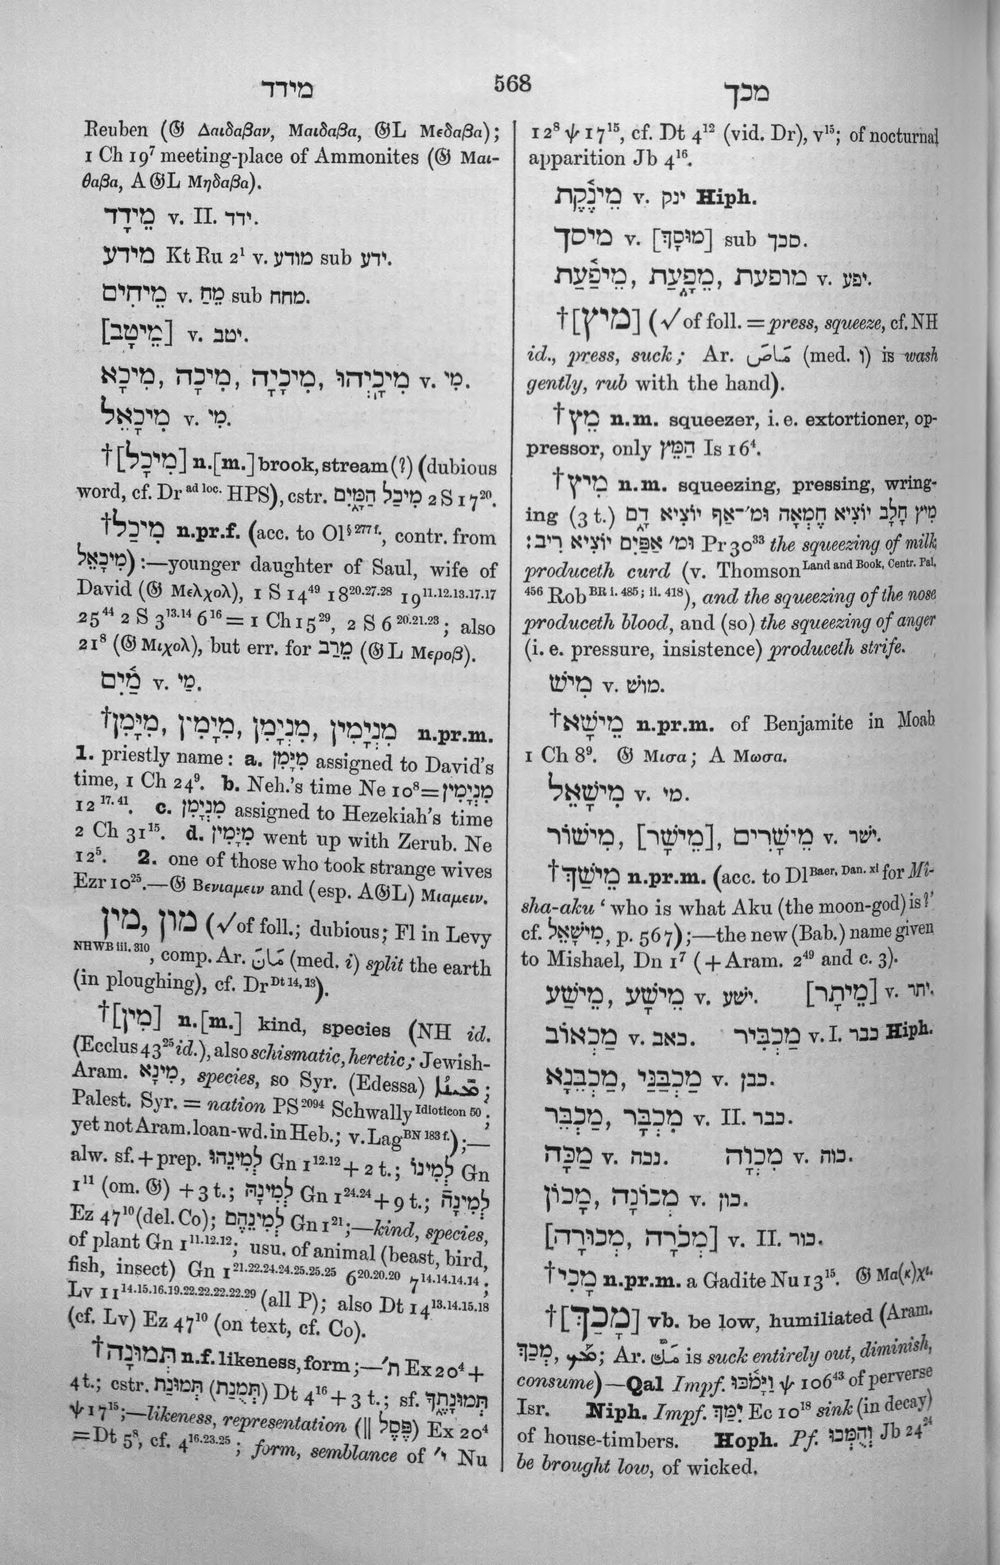 מידד
568
מכך
Reuben (𝔊 Δαιδαβαν, Μαιδαβα, 𝔊L Μεδαβα);
1 Ch 19⁷ meeting-place of Ammonites (𝔊 Μαι-
θαβα, A 𝔊L Μηδαβα).
מֵידָד v. II. ידד.
מידע Kt Ru 2¹ v. מודע sub ידע.
מֵיחִים v. מֵחַ sub מחח.
[מֵיטָב] v. יטב.
מִיכָא, מִיכָה, מִיכָיָה, מִיכָיְהוּ v. מִי.
מִיכָאֵל v. מִי.
†[מִיכָל] n.[m.] brook, stream (?) (dubious
word, cf. Dr ad loc. HPS), cstr. מִיכַל הַמָּיִם 2 S 17²⁰.
†מִיכַל n.pr.f. (acc. to Ol§ 277 f., contr. from
מִיכָאֵל):—younger daughter of Saul, wife of
David (𝔊 Μελχολ), 1 S 14⁴⁹ 18²⁰·²⁷·²⁸ 19¹¹·¹²·¹³·¹⁷·¹⁷
25⁴⁴ 2 S 3¹³·¹⁴ 6¹⁶ = 1 Ch 15²⁹, 2 S 6²⁰·²¹·²³; also
21⁸ (𝔊 Μιχολ), but err. for מֵרַב (𝔊L Μεροβ).
מַ֫יִם v. מַי.
†מִיָּמִן, מִיָמִין, מִנְיָמִן, מִנְיָמִין n.pr.m.
1. priestly name: a. מִיָּמִן assigned to David's
time, 1 Ch 24⁹. b. Neh.'s time Ne 10⁸ = מִנְיָמִין
12¹⁷·⁴¹. c. מִנְיָמִן assigned to Hezekiah's time
2 Ch 31¹⁵. d. מִיָּמִין went up with Zerub. Ne
12⁵. 2. one of those who took strange wives
Ezr 10²⁵.—𝔊 Βενιαμειν and (esp. A𝔊L) Μιαμειν.
מון, מין (√ of foll.; dubious; Fl in Levy
NHWB iii. 310, comp. Ar. مَانَ (med. i) split the earth
(in ploughing), cf. Dr Dt 14, 13).
†[מִין] n.[m.] kind, species (NH id.
(Ecclus 43²⁵ id.), also schismatic, heretic; Jewish-
Aram. מִינָא, species, so Syr. (Edessa)
Palest. Syr. = nation PS²⁰⁹⁴ Schwally Idioticon 50;
yet not Aram. loan-wd. in Heb.; v. Lag BN 183 f.);—
alw. sf. + prep. לְמִינֵהוּ Gn 1¹²·¹² + 2 t.; לְמִינוֹ Gn
1¹¹ (om. 𝔊) + 3 t.; לְמִינָהּ Gn 1²⁴·²⁴ + 9 t.; לְמִינָה
Ez 47¹⁰ (del. Co); לְמִינֵהֶם Gn 1²¹;—kind, species,
of plant Gn 1¹¹·¹²·¹²; usu. of animal (beast, bird,
fish, insect) Gn 1²¹·²²·²⁴·²⁴·²⁵·²⁵·²⁵ 6²⁰·²⁰·²⁰ 7¹⁴·¹⁴·¹⁴·¹⁴;
Lv 11¹⁴·¹⁵·¹⁶·¹⁹·²²·²²·²²·²²·²⁹ (all P); also Dt 14¹³·¹⁴·¹⁵·¹⁸
(cf. Lv) Ez 47¹⁰ (on text, cf. Co).
†תְּמוּנָה n.f. likeness, form;—ת׳ Ex 20⁴ +
4 t.; cstr. תְּמוּנַת (תְּמֻנַת) Dt 4¹⁶ + 3 t.; sf. תְּמוּנָתֶךָ
ψ 17¹⁵;—likeness, representation (‖ פֶּסֶל) Ex 20⁴
= Dt 5⁸, cf. 4¹⁶·²³·²⁵; form, semblance of י׳ Nu
12⁸ ψ 17¹⁵, cf. Dt 4¹² (vid. Dr), v¹⁵; of nocturnal
apparition Jb 4¹⁶.
מֵינֶ֫קֶת v. ינק Hiph.
מיסך v. [מוּסָךְ] sub סכך.
מופעת, מֵפָ֑עַת, מֵיפַ֫עַת v. יפע.
†[מיץ] (√ of foll. = press, squeeze, cf. NH
id., press, suck; Ar. مَاصَ (med. و) is wash
gently, rub with the hand).
†מֵץ n.m. squeezer, i. e. extortioner, op-
pressor, only הַמֵּץ Is 16⁴.
†מִיץ n.m. squeezing, pressing, wring-
ing (3 t.) מִיץ חָלָב יוֹצִיא חֶמְאָה וּמ׳־אַף יוֹצִיא דָם
וּמ׳ אַפַּיִם יוֹצִיא רִיב: Pr 30³³ the squeezing of milk
produceth curd (v. Thomson Land and Book, Centr. Pal.
456 Rob BR i. 485; ii. 418), and the squeezing of the nose
produceth blood, and (so) the squeezing of anger
(i. e. pressure, insistence) produceth strife.
מִישׁ v. מוש.
†מֵישָׁא n.pr.m. of Benjamite in Moab
1 Ch 8⁹. 𝔊 Μισα; A Μωσα.
מִישָׁאֵל v. מי.
מִישׁוֹר, [מֵישָׁר], מֵישָׁרִים v. ישר.
†מֵישַׁךְ n.pr.m. (acc. to Dl Baer, Dan. xi for Mi-
sha-aku ‘who is what Aku (the moon-god) is?’
cf. מִישָׁאֵל, p. 567);—the new (Bab.) name given
to Mishael, Dn 1⁷ (+ Aram. 2⁴⁹ and c. 3).
מֵישַׁע, מֵישָׁע v. ישע. [מֵיתָר] v. יתר.
מַכְאוֹב v. כאב. מַכְבִּיר v. I. כבר Hiph.
מַכְבֵּנָא, מַכְבַּנַּי v. כבן.
מַכְבֵּר, מִכְבָּר v. II. כבר.
מַכָּה v. נכה. מִכְוָה v. כוה.
מָכוֹן, מְכוֹנָה v. כון.
[מְכוּרָה, מְכֹרָה] v. II. כור.
†מָכִי n.pr.m. a Gadite Nu 13¹⁵. 𝔊 Μα(κ)χι.
†[מָכַךְ] vb. be low, humiliated (Aram.
מְכַךְ, ; Ar. مَكَّ is suck entirely out, diminish,
consume)—Qal Impf. וַיָּמֹ֫כּוּ ψ 106⁴³ of perverse
Isr. Niph. Impf. יִמַּךְ Ec 10¹⁸ sink (in decay)
of house-timbers. Hoph. Pf. וְהֻמְּכוּ Jb 24²⁴
be brought low, of wicked.